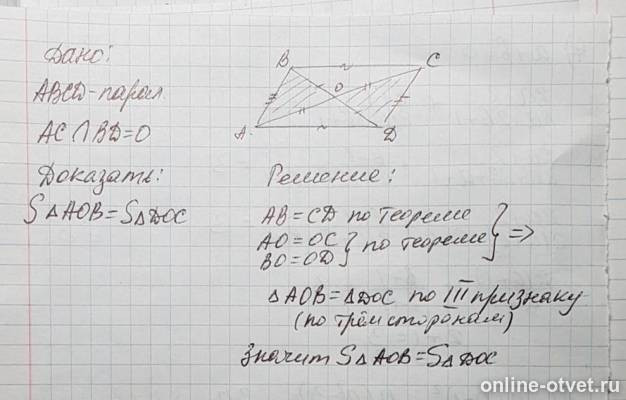 Дано:
ABCD-парал.
AC∩BD=O
Доказать:
S△AOB=S△DOC
B
C
O
A
D
Решение:
AB=CD по теореме
AO=OC
BO=OD
} по теореме
} =>
△AOB=△DOC по III признаку
(по трём сторонам)
Значит S△AOB=S△DOC
online-otvet.ru